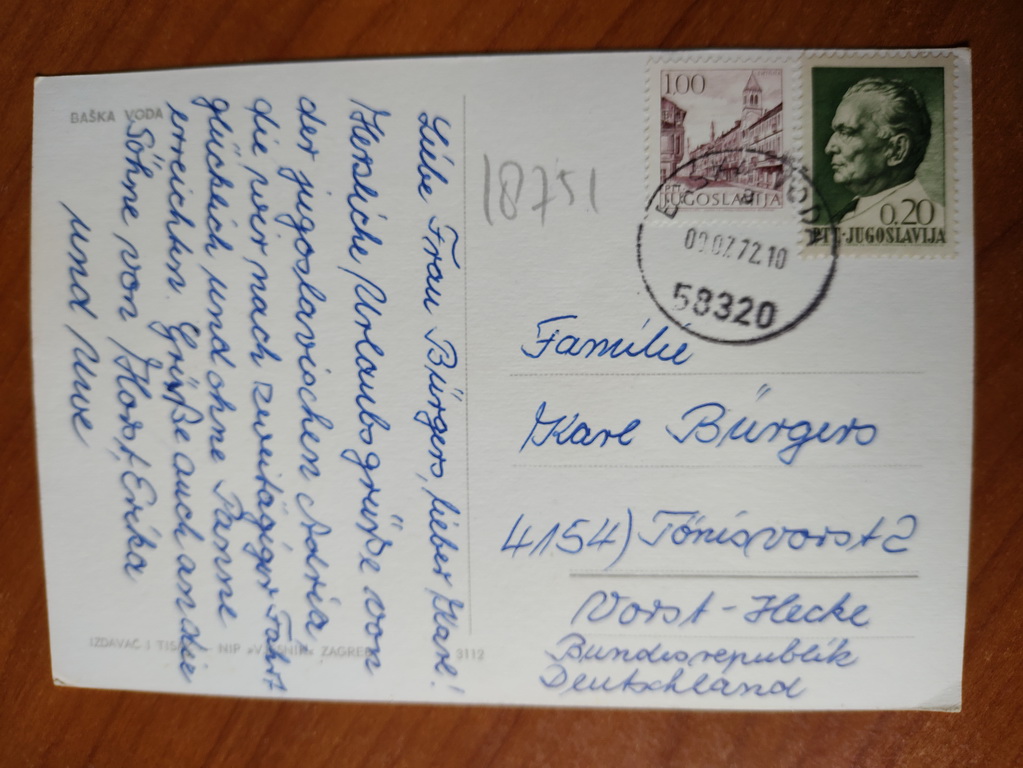 BAŠKA VODA
Liebe Frau Bürgers, lieber Karl!
Herzliche Urlaubsgrüße von
der jugoslawischen Adria,
die wir nach zweitägiger Fahrt
glücklich und ohne Panne
erreichten. Grüße auch an die
Söhne von Horst, Erika
und Uwe
IZDAVAČ I NIP »VJESNIK« ZAGREB
3112
18751
1.00
PTT
JUGOSLAVIJA
0.20
PTT-JUGOSLAVIJA
09.07.72.10
58320
Familie
Karl Bürgers
4154) Tönisvorst 2
Vorst-Hecke
Bundesrepublik
Deutschland